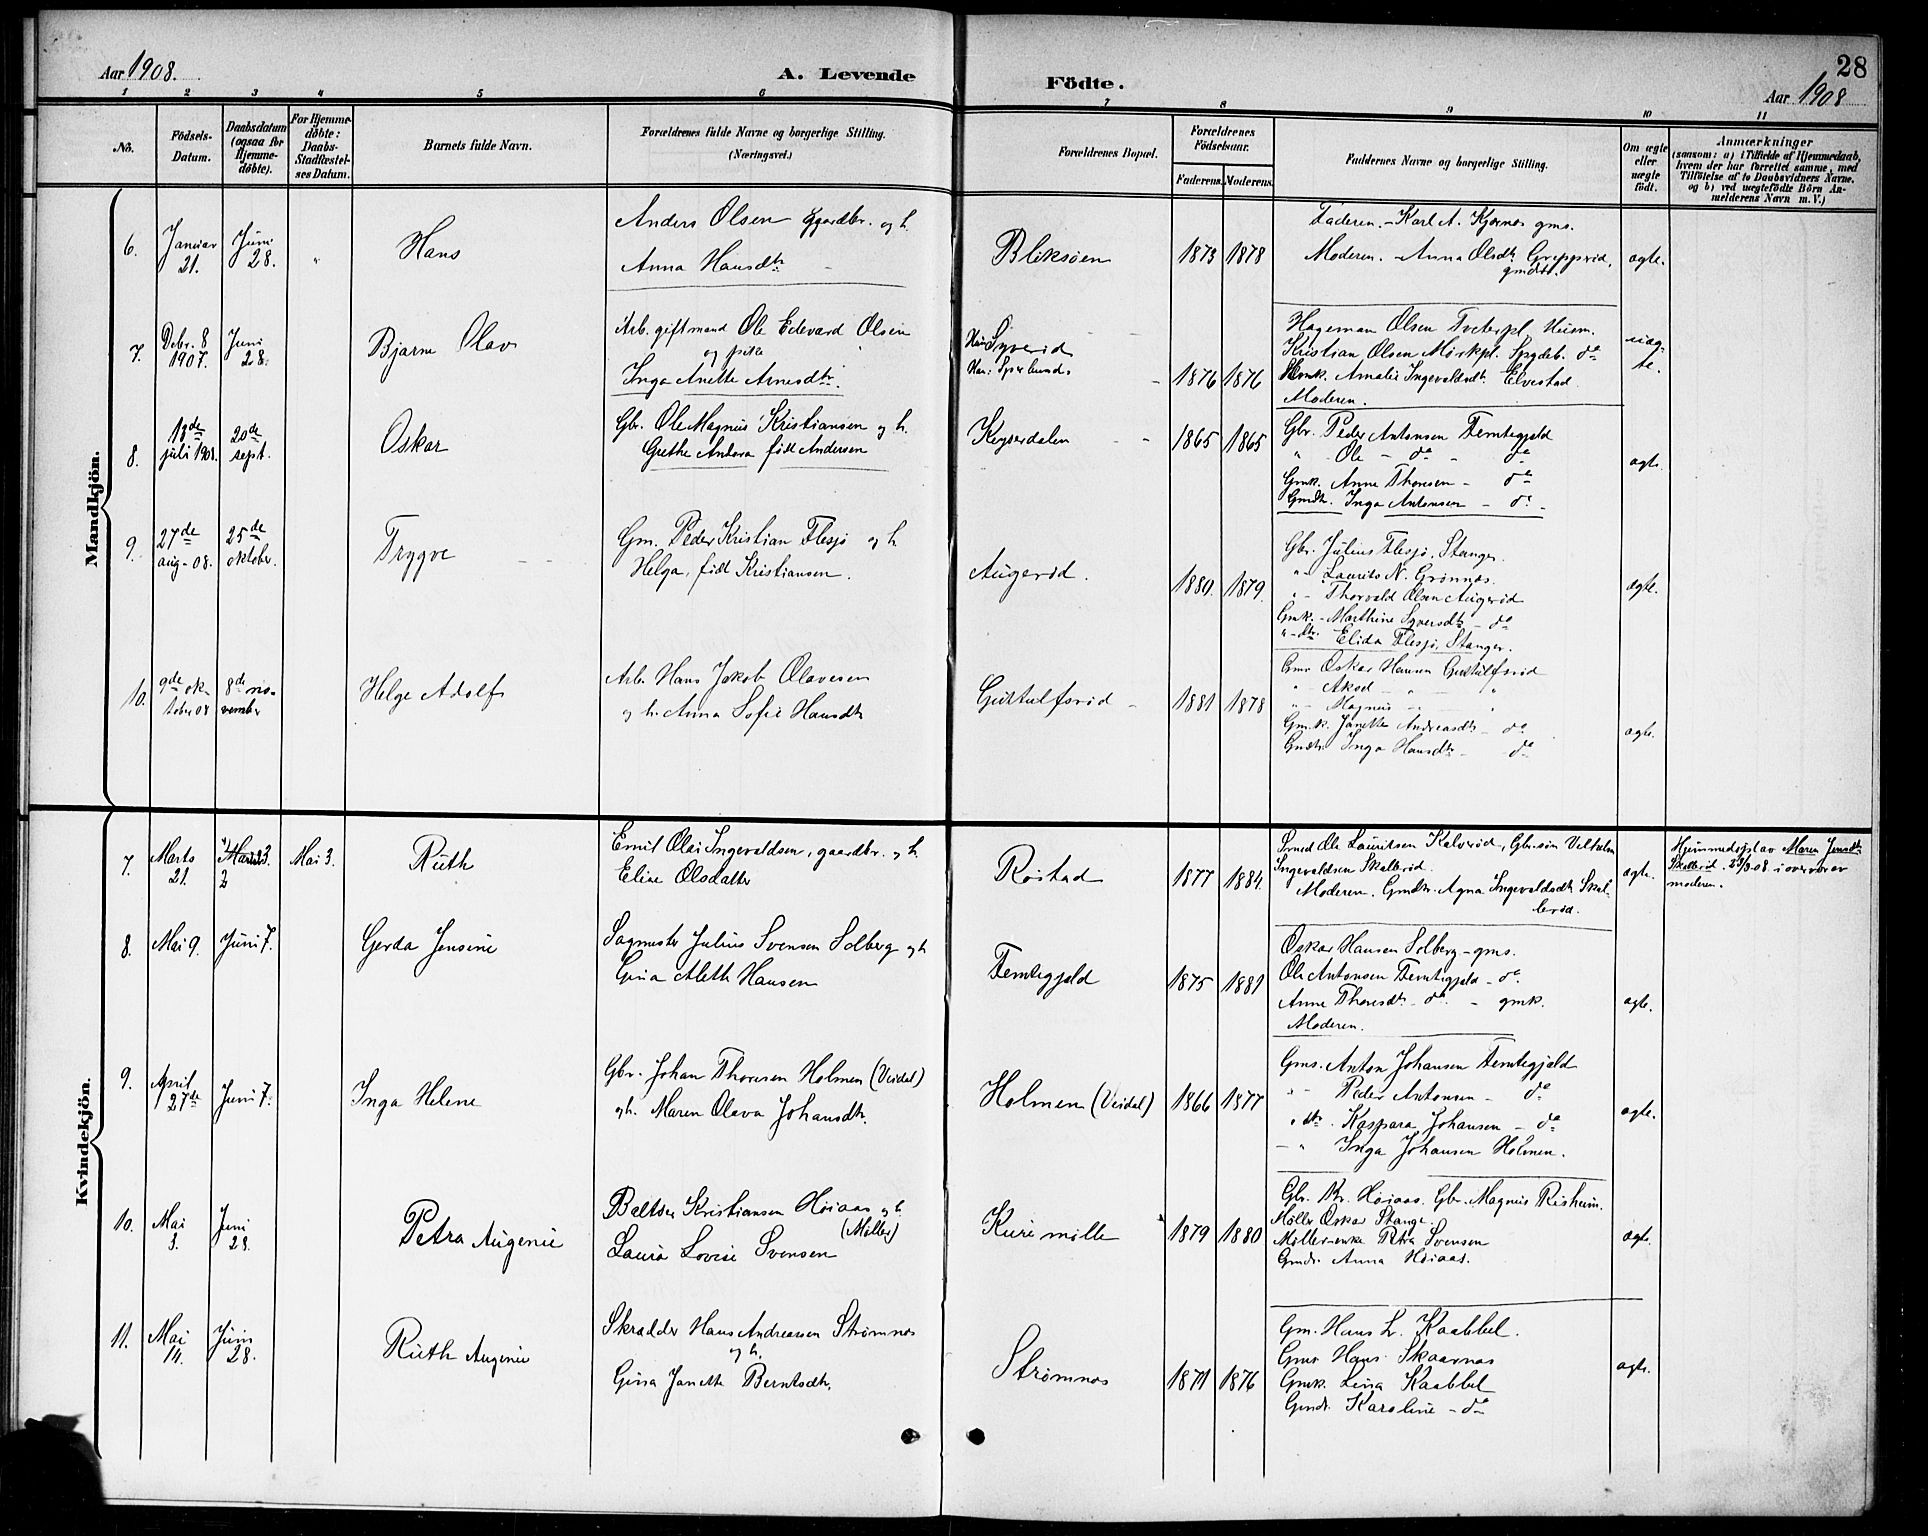 28
Aar 1908.
A. Levende
Födte.
Aar 1908
1 2 3 4 5 6 7 8 9 10 11
Nô.
Födsels-
Datum.
Daabsdatum
(ogsaa for
Hjemme-
döbte).
For Hjemme-
döbte:
Daabs-
Stadfæstel-
ses Datum.
Barnets fulde Navn.
Forældrenes fulde Navne og borgerlige Stilling.
(Næringsvei.)
Forældrenes Bopæl.
Forældrenes
Födselsaar.
Faderens. Moderens.
Faddernes Navne og borgerlige Stilling.
Om ægte
eller
uægte
födt.
Anmærkninger
(saasom: a) i Tilfælde af Hjemmedaab,
hvem der har forrettet samme, med
Tilföielse af to Daabsvidners Navne,
og b) ved uægtefödte Börn An-
melderens Navn m. V.)
Mandkjön.
6.
Januar
21.
Juni
28.
"
Hans
Anders Olsen Gaardbr. og h.
Anna Hansdtr
Bliksöen
1873 1878
Faderen. - Karl A. Kjærnes gms.
Moderen. - Anna Olsdtr Greppsrød,
gmdtr.
ægte.
7.
Debr. 8
1907.
Juni
28.
Bjarne Olav
Arb. gift mand Ole Edevard Olsen
og pike
Inga Anette Arnesdtr.
1876 1876
Hageman Olsen Tveterpl.
Kristian Olsen Mörkpl. Spydeb. do
Amalie Ingevaldsdtr Elvestad
Moderen.
uæg-
te.
8.
13de
juli 1908.
20de
sept.
Oskar
Gbr. Ole Magnus Kristiansen og h.
Grethe Andora född Andersen
Keyserdalen
1865 1865
Gbr. Peder Antonsen Femtegjeld
" Ole - do - do
Gmk. Anne Thoresen - do
Gmdtr. Inga Antonsen - do -
ægte.
9.
27de
aug - 08.
25de
oktober.
Trygve
Gm. Peder Kristian Flesjø og h.
Helga, född Kristiansen.
Augerød.
1880. 1879.
Gbr. Julius Flesjø, Stanger.
" - Laurits N. Grønnes.
" - Thorvald Olsen Augerød
Gmk. - Marthine Syversdtr - do
" - dtr. Elida Flesjø, Stanger.
ægte.
10.
9de ok-
tober 08
8de no-
vember
Helge Adolf
Arb. Hans Jakob Olavesen
og h. Anna Sofie Hansdtr
Gutulfsrød
1881 1878
Gmr Oskar Hansen Gutulfsrød
" - " - "
" - Magnus - "
Gmk. Janette Andreasdtr - do
Gmdtr Inga Hansdtr - do
ægte.
Kvindekjön.
7.
Marts
21.
Mai 3.
Ruth
Emil Olai Ingevaldsen, gaardbr. og h.
Eline Olsdatter
Röstad
1877 1884.
Smed Ole Lauritsen Kalvröd, Gbr. sön Vilhelm
Ingevaldsen Skallerød.
Moderen. Gmdtr. Agna Ingevaldsdtr Skal-
lerød.
ægte.
Hjemmedøpt av Maren Jensdtr
Skallerød 23/3 08 i overvær av
moderen.
8.
Mai 9.
Juni 7.
Gerda Jensine
Sagmester Julius Svensen Solberg og h.
Gina Aleth Hansen
Femtegjeld
1875 1881
Oskar Hansen Solberg - gms.
Ole Antonsen Femtegjeld - do
Anne Thoresdtr - do - gmk.
Moderen.
ægte.
9.
April
27de
Juni 7.
Inga Helene
Gbr. Johan Thoresen Holmen (Veidal)
og h. Maren Olava Johansdtr.
Holmen (Veidal)
1866 1877
Gms. Anton Johansen Femtegjeld
" - Peder Antonsen - do
" dtr. Kaspara Johansen - do
- " Inga Johansen Holmen.
ægte.
10.
Mai
3.
Juni
28.
Petra Augenie
Baltser Kristiansen Höiaas og h.
(Møller)
Laura Lovise Svensen
Kure mølle
1879 1880
Gbr. Kr. Höiaas. Gbr. Magnus Risheim.
Møller Oskar Stange
Møller-enke Petra Svensen
Gmdr. Anna Höiaas.
ægte.
11.
Mai
14.
Juni
28.
Ruth Augenie
Skrædder Hans Andreasen Strømnes
og h.
Gina Janette Berntsdtr.
Strømnes
1871 1876
Gm. Hans L. Kaabbel.
Gmr Hans Skaarnes
Gmk. Lina Kaabbel
Gmdr. Karoline - do
ægte.